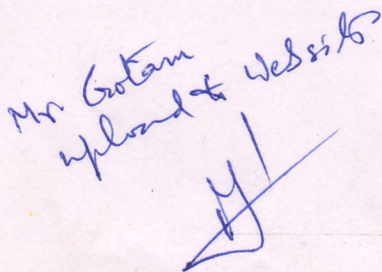 Mr Gotam
upload to Website